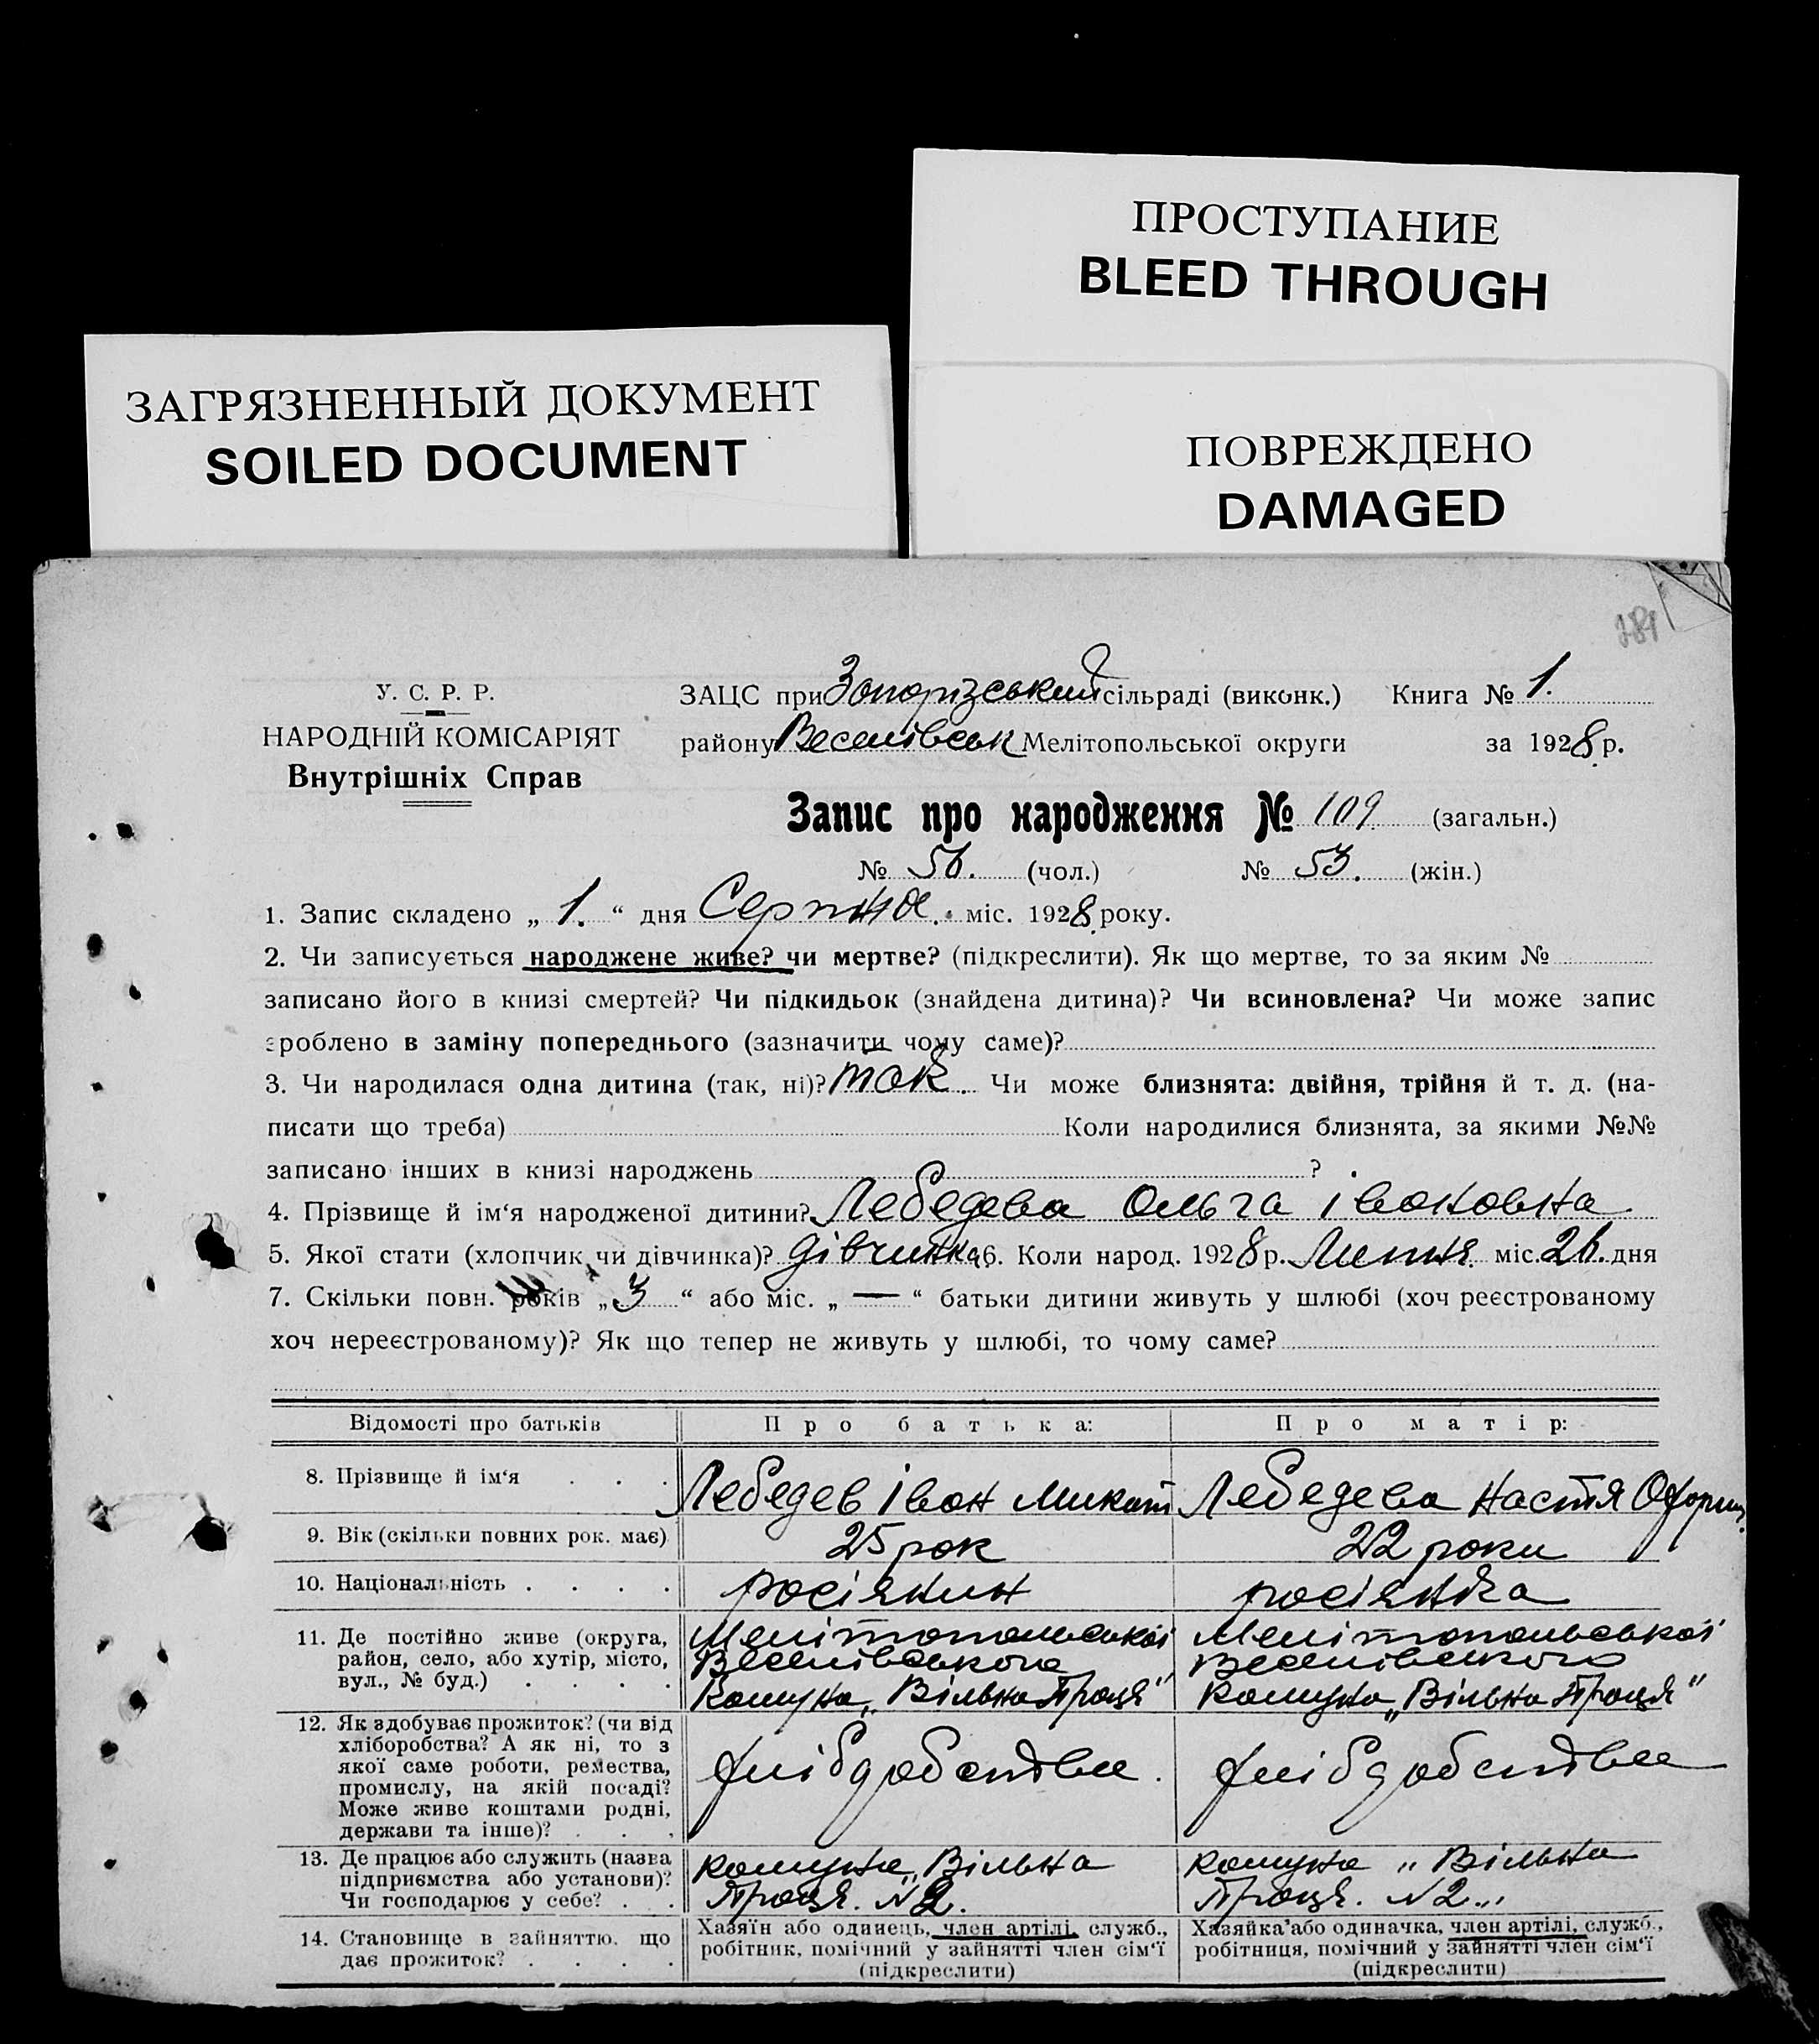 ПРОСТУПАНИЕ
BLEED THROUGH
ЗАГРЯЗНЕННЫЙ ДОКУМЕНТ
SOILED DOCUMENT
ПОВРЕЖДЕНО
DAMAGED
281
У. С. Р. Р.
НАРОДНІЙ КОМІСАРІЯТ
Внутрішніх Справ
ЗАЦС при Запорізський сільраді (виконк.) Книга № 1.
району Веселівськ Мелітопольської округи за 1928 р.
Запис про народження № 109 (загальн.)
№ 56. (чол.) № 53. (жін.)
1. Запис складено „ 1. “ дня Серпня. міс. 1928 року.
2. Чи записується народжене живе? чи мертве? (підкреслити). Як що мертве, то за яким №
записано його в книзі смертей? Чи підкидьок (знайдена дитина)? Чи всиновлена? Чи може запис
зроблено в заміну попереднього (зазначити чому саме)?
3. Чи народилася одна дитина (так, ні)? так. Чи може близнята: двійня, трійня й т. д. (на-
писати що треба) Коли народилися близнята, за якими №№
записано інших в книзі народжень ?
4. Прізвище й ім‘я народженої дитини? Лебедева Ольга Івановна
5. Якої стати (хлопчик чи дівчинка)? дівчинка 6. Коли народ. 1928 р. Липня міс. 26. дня
7. Скільки повн. років „ 3 “ або міс. „ — “ батьки дитини живуть у шлюбі (хоч реєстрованому
хоч нереєстрованому)? Як що тепер не живуть у шлюбі, то чому саме?
Відомості про батьків Про батька: Про матір:
8. Прізвище й ім‘я . . . Лебедев Іван Микит Лебедева Настя
9. Вік (скільки повних рок. має) 25 рок 22 роки
10. Національність . . . . росіянин росіянка
11. Де постійно живе (округа,
район, село, або хутір, місто,
вул., № буд.) . . . .
Мелітопольської
Веселівського
Комуна „Вільна Праця“
Мелітопольської
Веселівського
Комуна „Вільна Праця“
12. Як здобуває прожиток? (чи від
хліборобства? А як ні, то з
якої саме роботи, ремества,
промислу, на якій посаді?
Може живе коштами родні,
держави та інше)? . . .
13. Де працює або служить (назва
підприємства або установи)?
Чи господарює у себе? . .
комуна „Вільна
Праця. №2.
комуна „Вільна
Праця. №2„
14. Становище в зайняттю, що
дає прожиток? . . . .
Хазяїн або одинець, член артілі, служб.,
робітник, помічний у зайнятті член сім‘ї
(підкреслити)
Хазяйка або одиначка, член артілі, служб.,
робітниця, помічний у зайнятті член сім‘ї
(підкреслити)